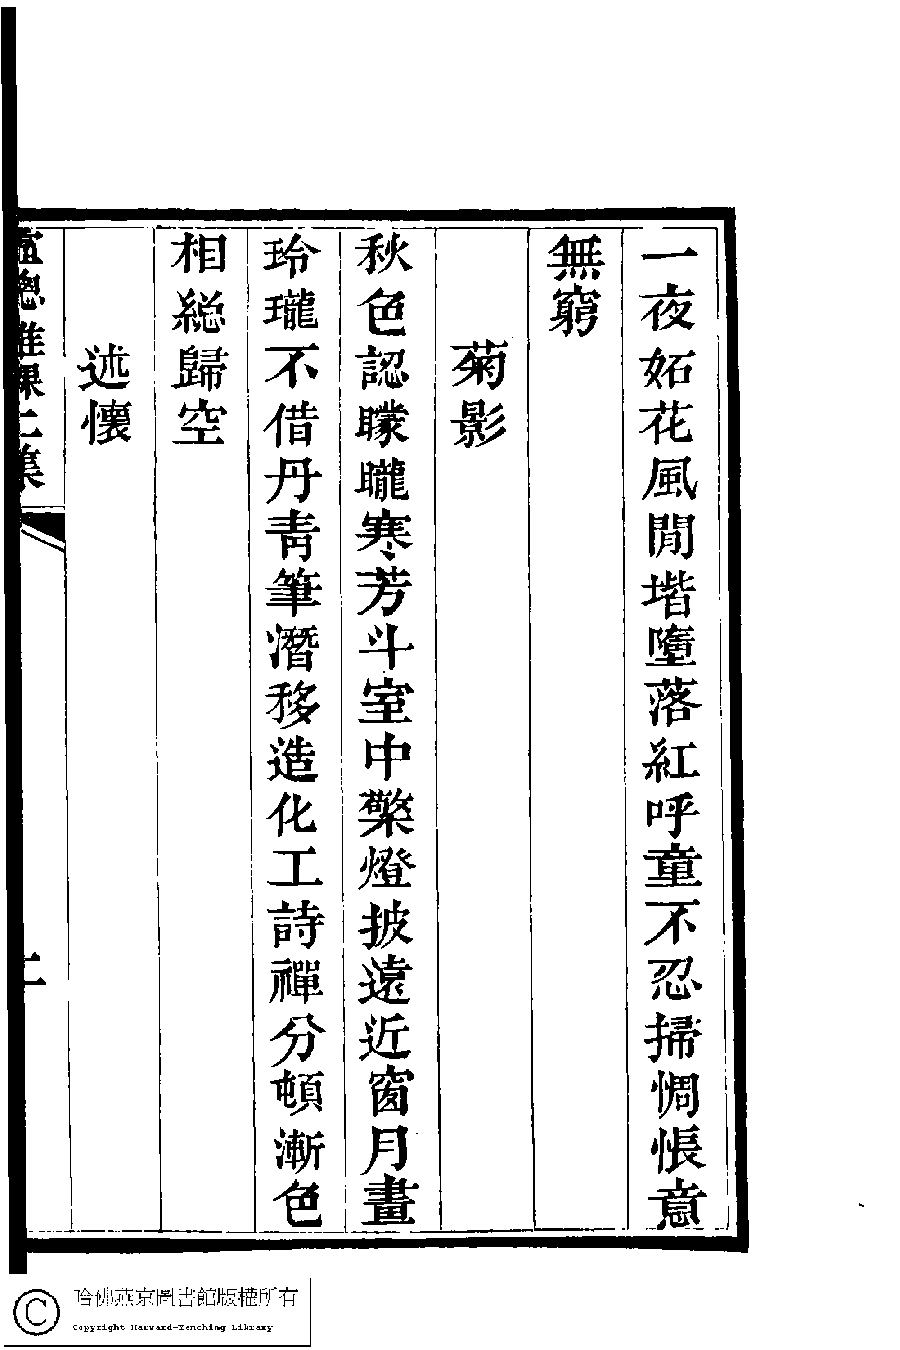 一夜妬花風閒堦墮落紅呼童不忍掃惆悵意
無窮
菊影
秋色認矇矓寒芳斗室中檠燈披遠近窗月畫
玲瓏不借丹靑筆潛移造化工詩禪分頓漸色
相総歸空
述懷
哈佛燕京圖書館版權所有
Copyright Harvard-Yenching Library